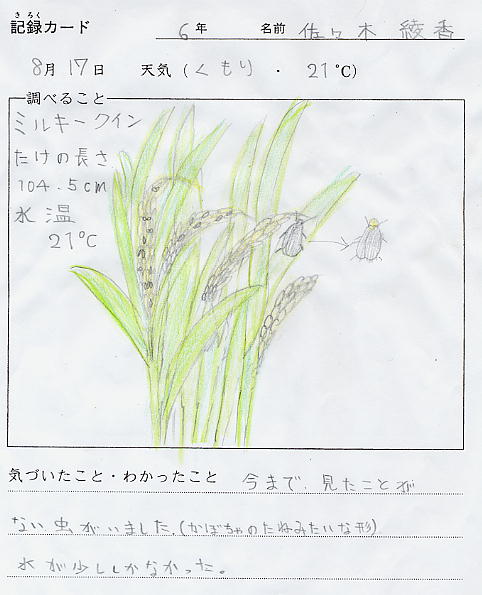 きろく
記録カード
6年 名前 佐々木 綾香
8月17日 天気（くもり ・ 21℃）
調べること
ミルキークイン
たけの長さ
104.5cm
水温
21℃
気づいたこと・わかったこと 今まで、見たことが
ない虫がいました。(かぼちゃのたねみたいな形)
水が少ししかなかった。